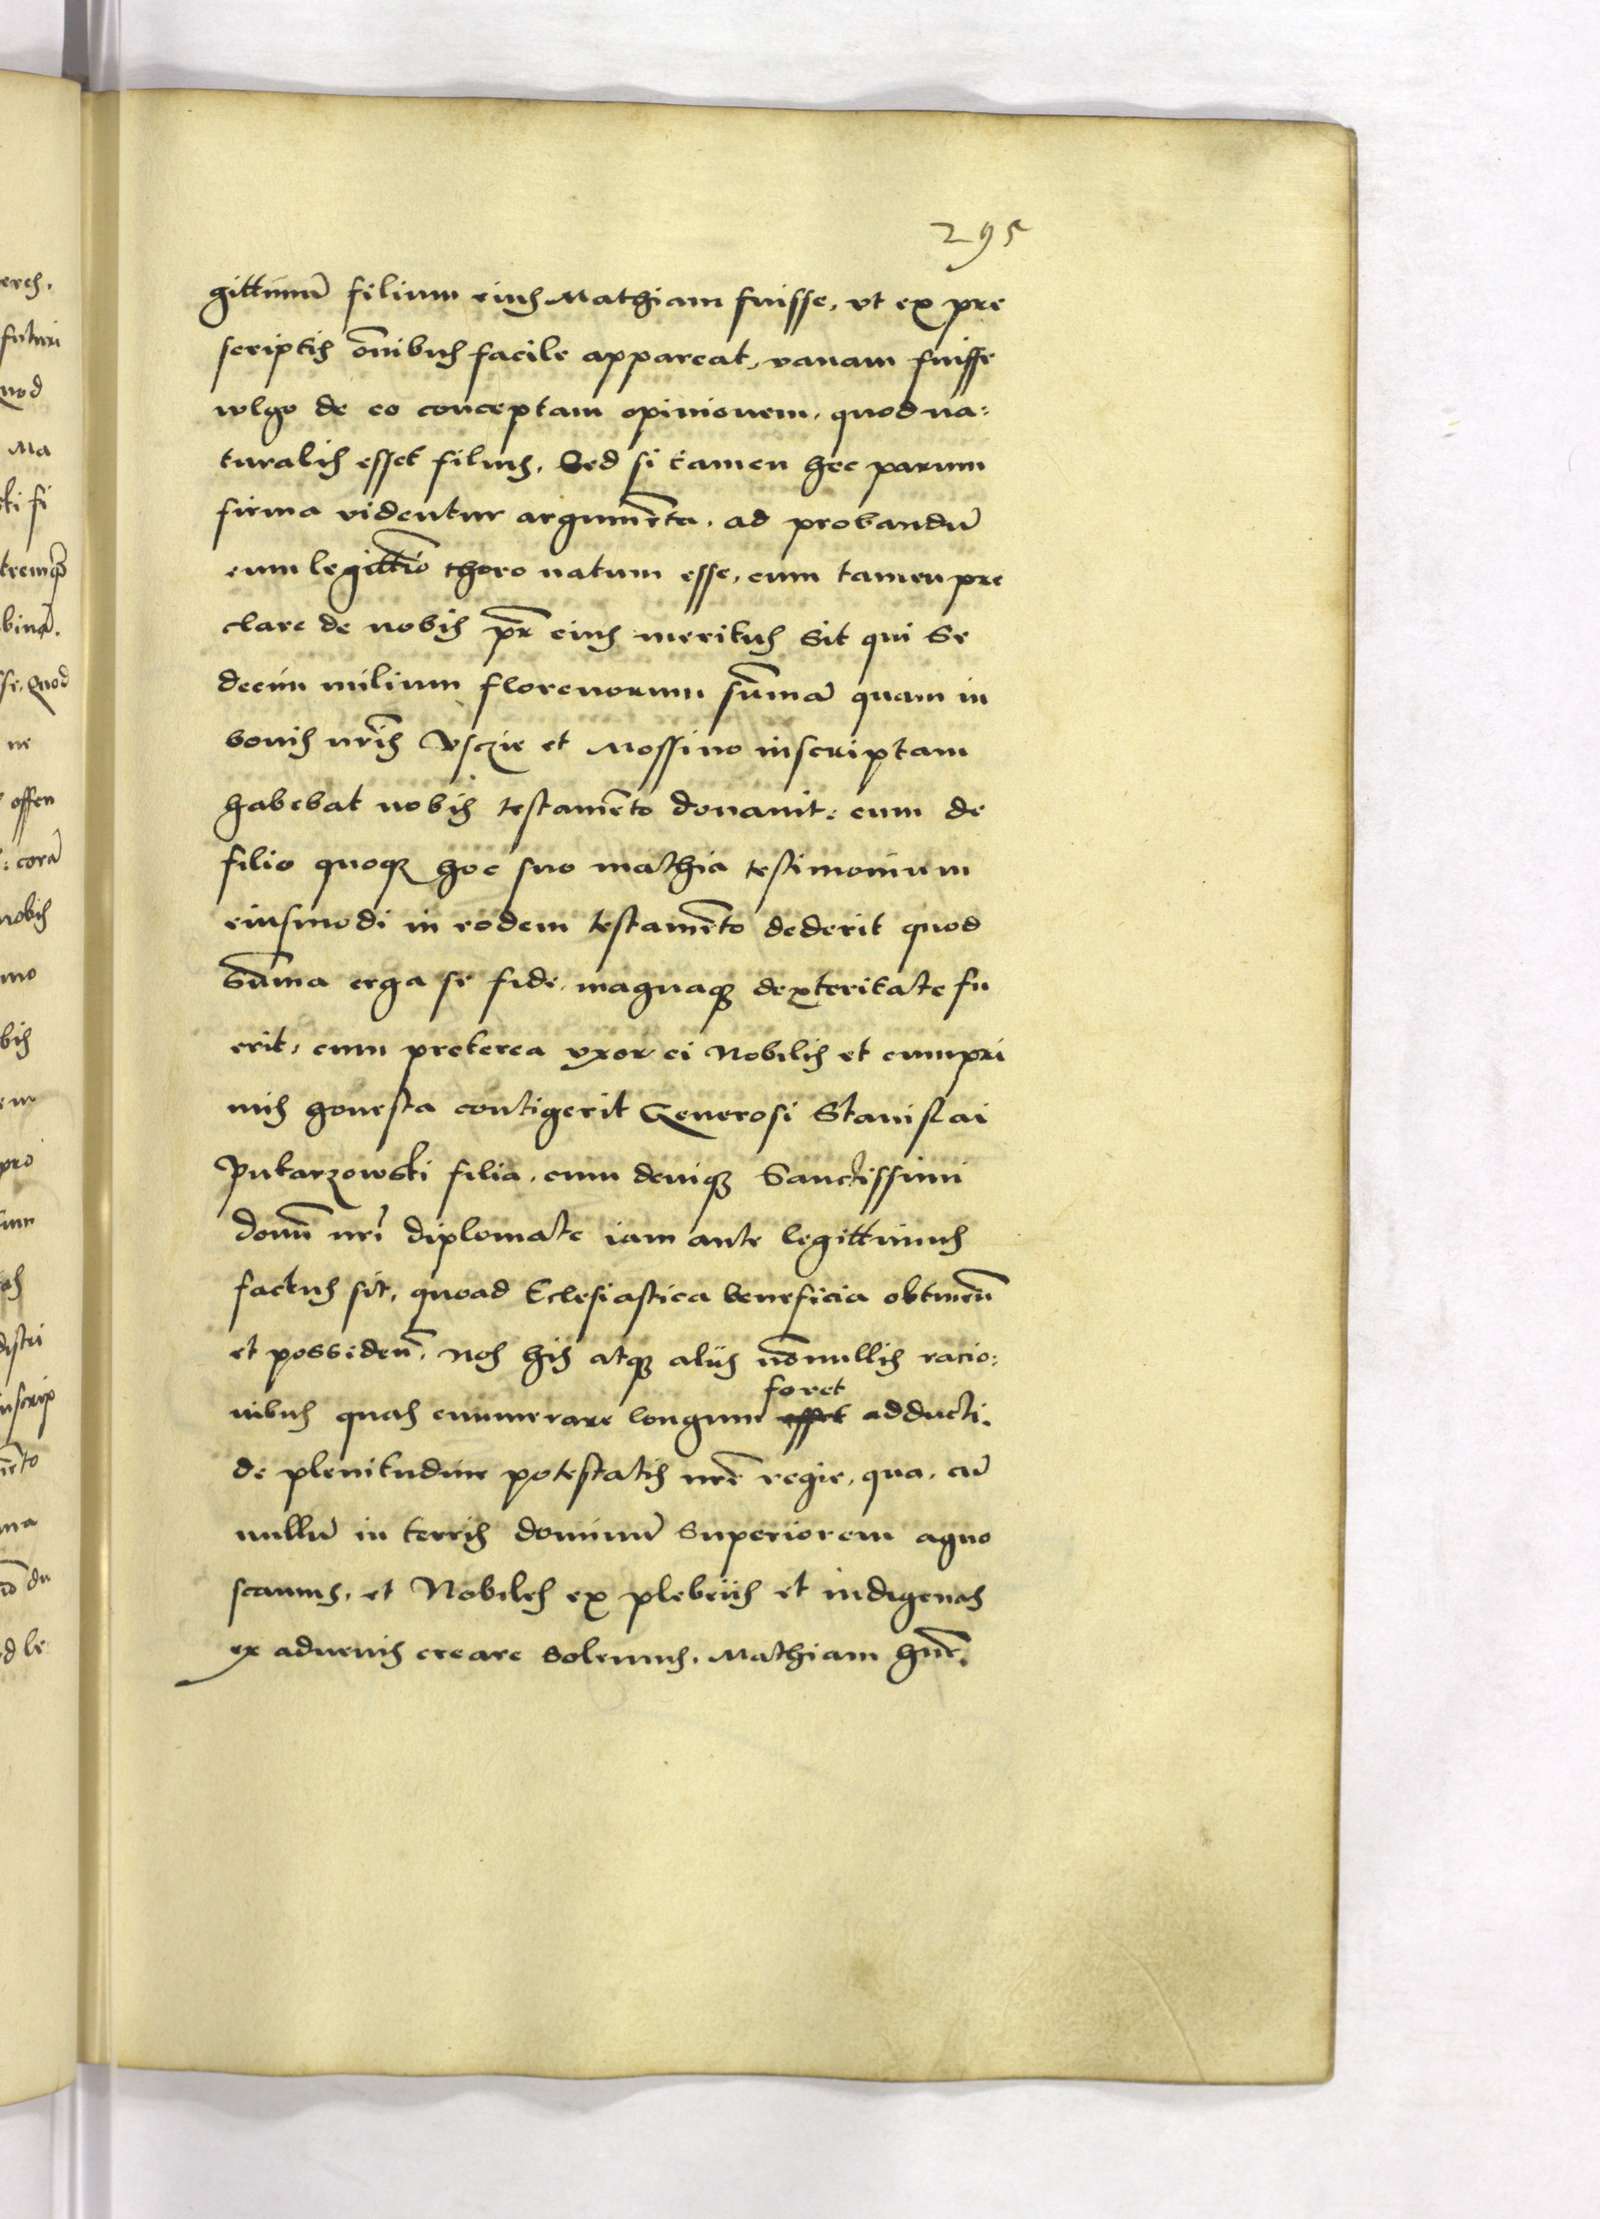 295
gittimū filium eius Mathiam fuisse, vt ex pre
scriptis ōnibus facile appareat, vanam fuisse
wlgo de eo conceptam opinionem, quod na=
turalis esset filius. Sed si tamen hec parum
firma videntur argumēta, ad probandū
eum legittīo thoro natum esse, cum tamen pre
clare de nobis pr̄ eius meritus sit qui se
decim milium florenorum sūmā quam in
bonis nr̄is Vsczie et Mossino inscriptam
habebat nobis testamēto donauit: cum de
filio quoqȝ hoc suo mathia testimonium
eiusmodi in eodem testamēto dederit quod
sūma erga se fide, magnaqȝ dexteritate fu
erit, cum preterea vxor ei Nobilis et cumpri
mis honesta contigerit Generosi Stanislai
Pukarzowski filia, cum deniqȝ Sanctissimi
domī nr̄i diplomate iam ante legittimus
factus sit, quoad Eclesiastica beneficia obtinēn̄
et possidēn̄. Nos his atqȝ aliis nōnullis racio:
foret
nibus quas enumerare longum esset adducti.
de plenitudine potestatis nr̄e regie, qua, cū
nullū in terris dominū superiorem agno
scamus, et Nobiles ex plebeiis et indigenas
ex aduenis creare solemus, Mathiam hūc.
erch.
futuri
quod
Ma
cti fi
tremqȝ
binā.
se, Quod
ne
offen
: corā
nobis
mo
bis
pro
inscrip
mēto
du
d le